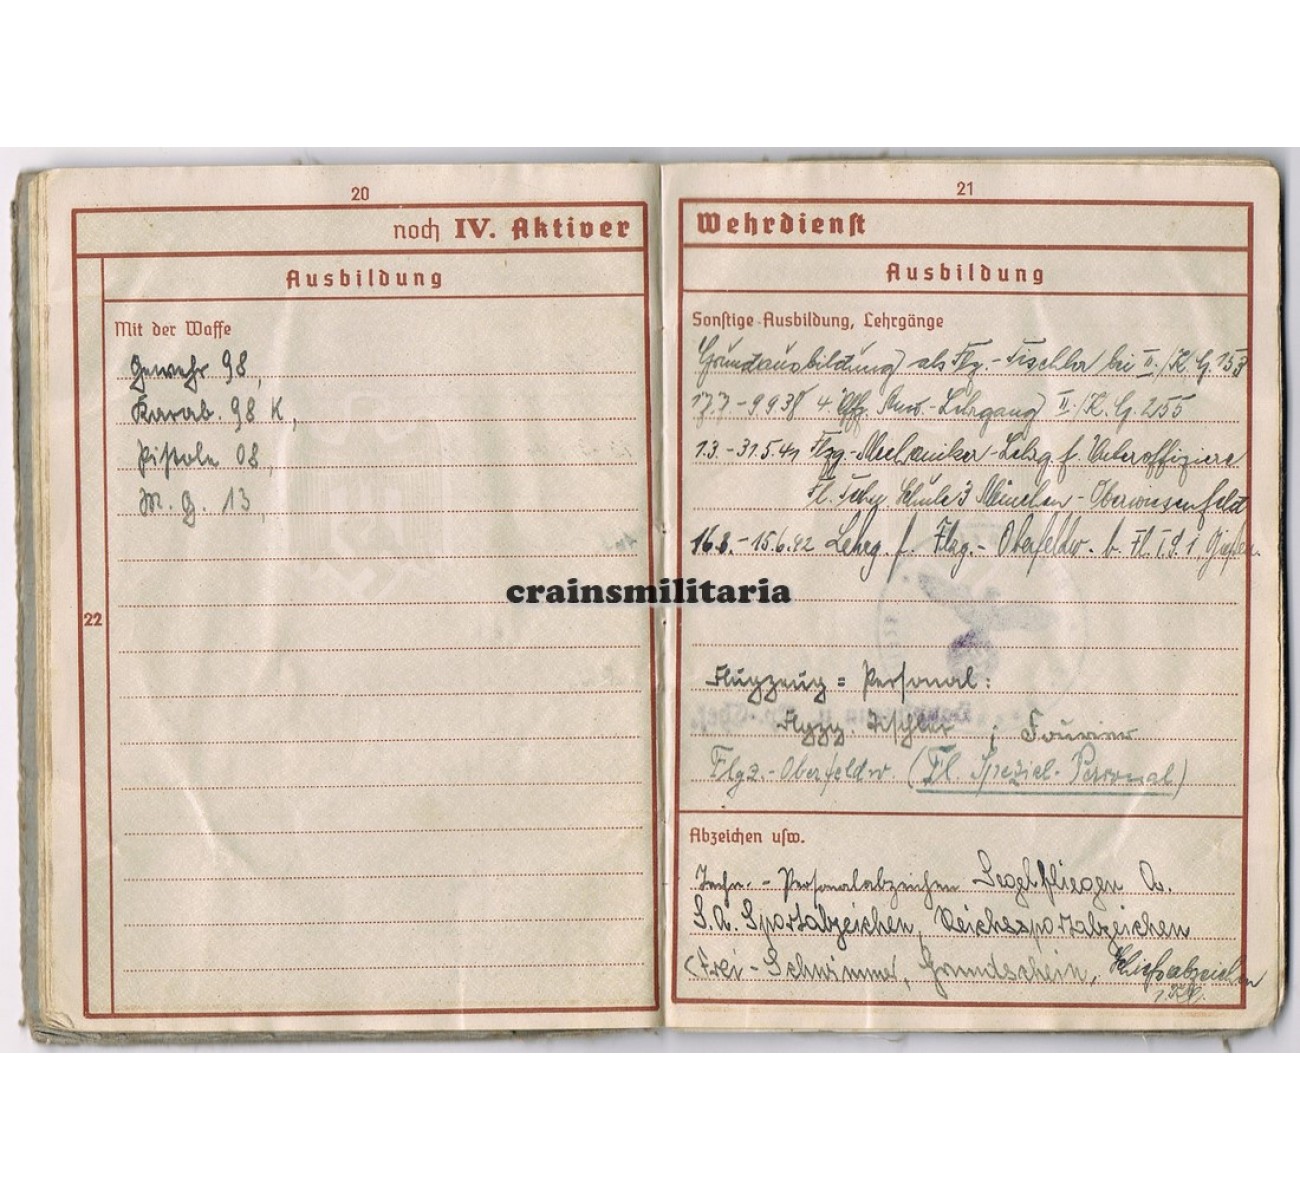 20
noch IV. Aktiver
Ausbildung
Mit der Waffe
Gewehr 98,
Karab. 98 K,
Pistole 08,
M. G. 13,
22
21
Wehrdienst
Ausbildung
Sonstige Ausbildung, Lehrgänge
Grundausbildung als Flzg.-Tischler bei II./K.G. 153
17.7.-9.9.38 4. Uffz. Anw.-Lehrgang II./K.G. 255
1.3.-31.5.41 Flzg.-Mechaniker-Lehrg. f. Unteroffiziere
Fl. Techn. Schule 3 München-Oberwiesenfeld
16.3.-15.6.42 Lehrg. f. Flzg.-Oberfeldw. b. Fl. T. S. 1, Gießen
Flugzeug = Personal:
Flgzg. Tischler ; Fourier
Flgz.-Oberfeldw. (Fl. Spezial-Personal)
Abzeichen usw.
Techn.-Personalabzeichen Segelfliegen A.
S.A. Sportabzeichen, Reichssportabzeichen
(Frei-Schwimmer, Grundschein, Schießabzeichen
crainsmilitaria